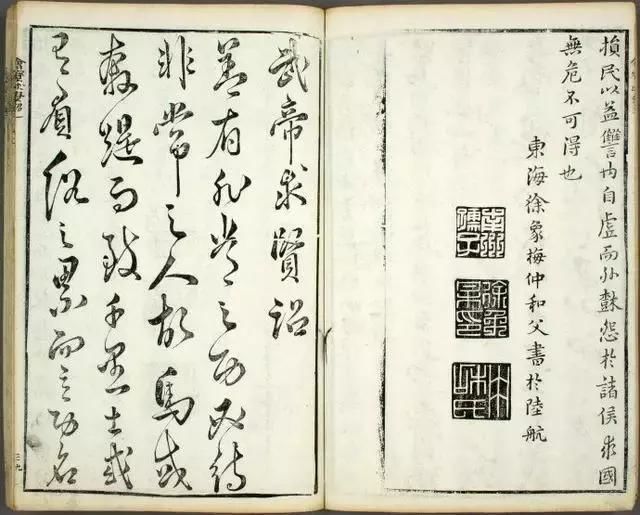 損民以益讎内自虛而外樹怨於諸侯求國
無危不可得也
東海徐象梅仲和父書於陸航
南州孺子
徐象梅印
武帝求賢詔
蓋有非常之功必待
非常之人故馬或
奔踶而致千里士或
有負俗之累而立功名